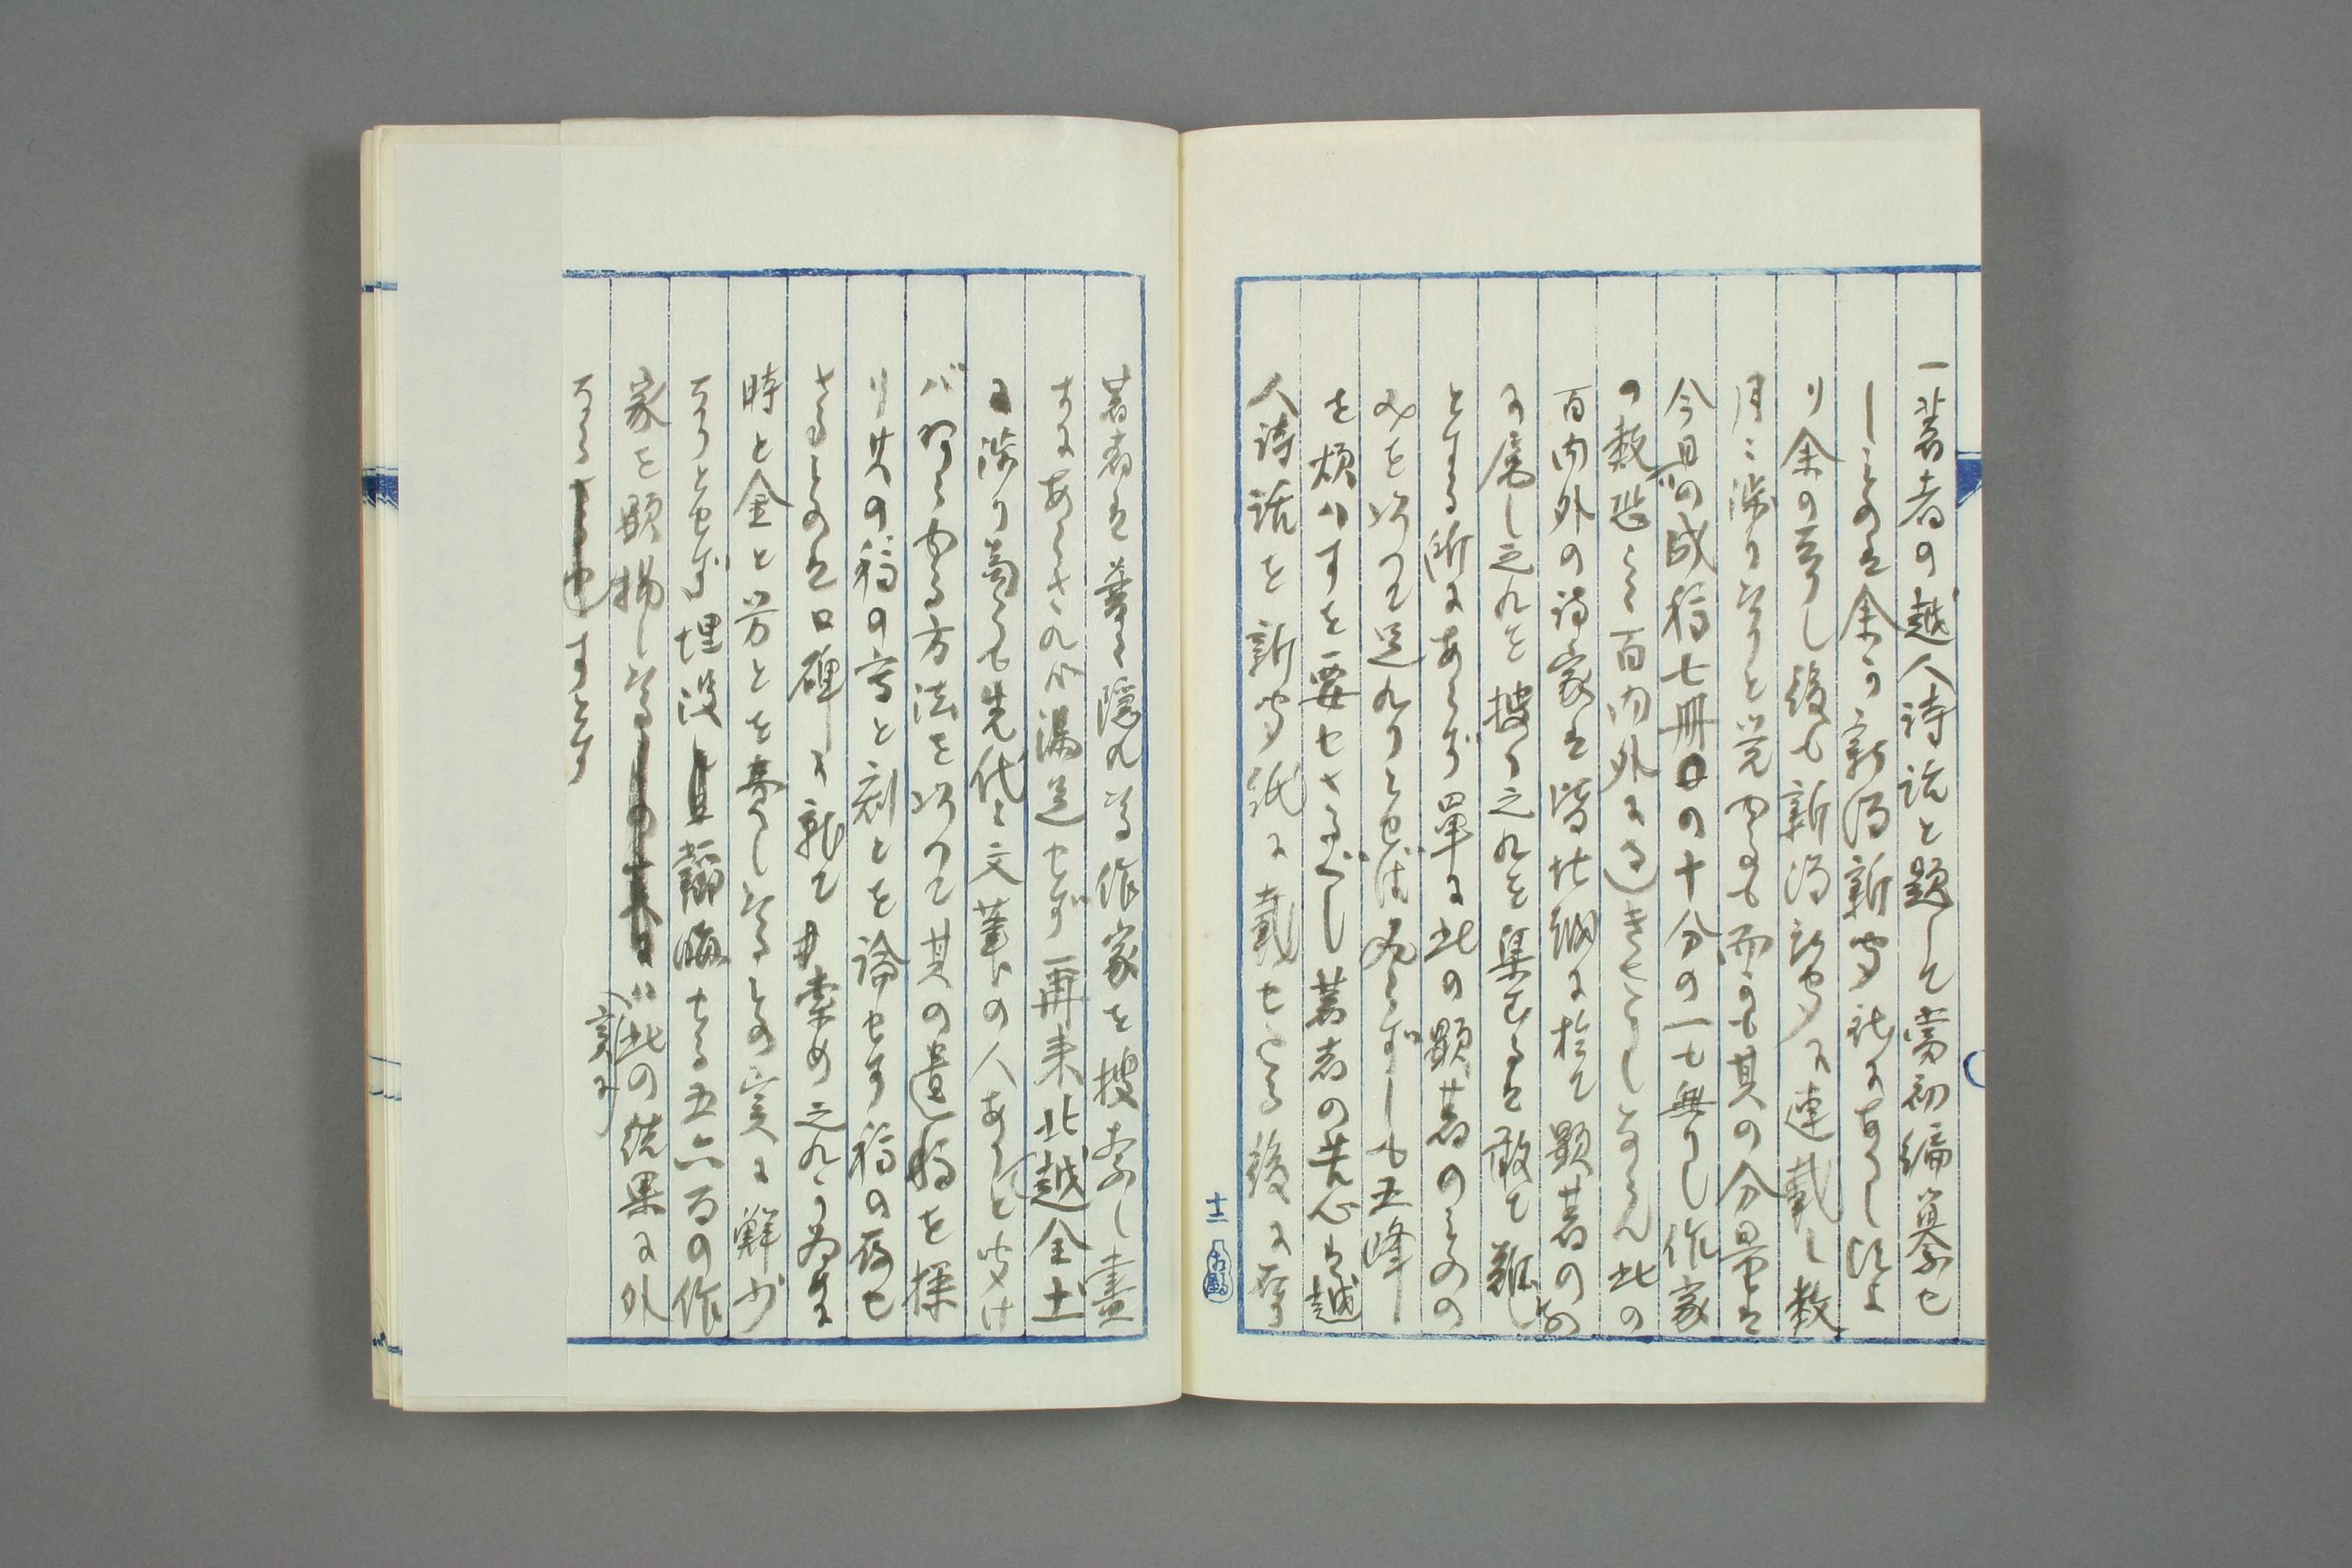 一著者の越人詩話と題して当初編纂せ
しものは余が新潟新聞社にありし頃よ
り余の去りし後も新潟新聞に連載し数
月に渉りたりと覚ゆるも而かも其の分量は
今日の成稿七冊の十分の一も無りし作家
の数恐くは百内外に過きさりしならん此の
百内外の詩家は皆北越に於て顕著のもの
に属し之れを捜り之れを集むるは敢て難し
とする所にあらず単に此の顕著のものの
みを以つて足れりとせば必らずしも五峰
を煩はすを要せさるべし著者の苦心は越
人詩話を新聞紙に載せたる後に在り
著者は普く隠れたる作家を捜索し尽
すにあらされば満足せず再来北越全土
に渉り苟くも先代に文筆の人ありと聞け
ば有らゆる方法を以つて其の遺稿を探
り其の稿の写と刻とを論せす稿の存せ
さるものは口碑に就て索め之れが為に
時と金と労とを費し たるもの実に鮮少
ならとせず埋没韜晦せる五六百の作
家を顕揚し たるは此の結果に外
ならすとす
実に
十二